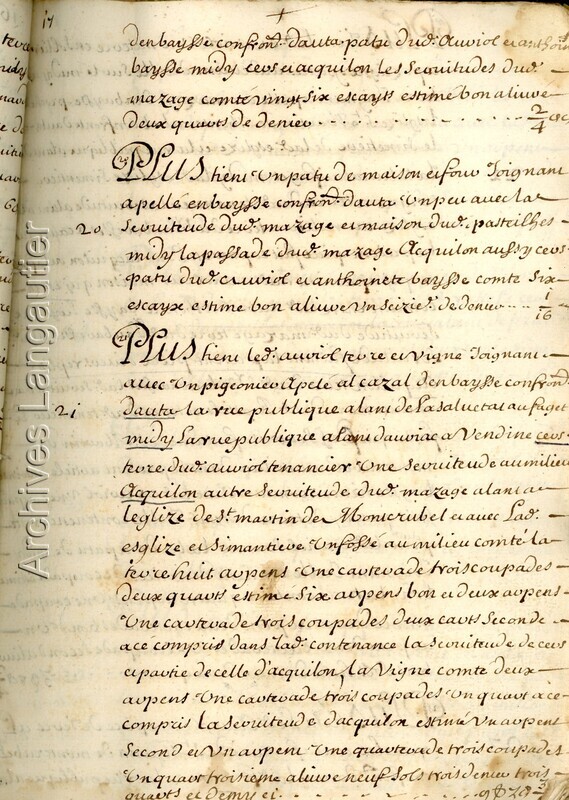 17
denbaysse confron.t dauta patu dud. auriol et anthoin
baysse midy cers et acquilon les servitudes dud.
mazage comte vingt six escayts estime bon alivre
deux quarts de denier 2/4
Plus tient un patu de maison et four joignant
apellé enbaysse confron.t dauta un peu avec la
20 servitude dud. mazage et maison dud. pasteilhes
midy la passade dud. mazage Acquilon aussy cers
patu dud. auriol et anthoinete baysse comte six
escayx estime bon alivre un seizie. de denier 1/16
Plus tient led. auriol terre et vigne joignant
avec un pigeonier apele al cazal denbaysse confron.t
21 dauta la rue publique alant de Lasalvetat au faget
midy la rue publique alant dauriac a Vendine cers
terre dud. auriol tenancier une servitude au milieu
Acquilon autre servitude dud. mazage alant a
leglize de St martin de Montcrubel et avec lad.
esglize et simantiere un fossé au milieu comté la
terre huit arpens une carterade trois coupades
deux quarts estime six arpens bon et deux arpens
une carterade trois coupades deux carts second
a ce compris dans lad. contenance la servitude de cers
et partie de celle d'acquilon, la vigne comte deux
arpens une carterade trois coupades un quart a ce
compris la servitude dacquilon estimé un arpent
second et un arpent une quarterade trois coupades
un quart troisieme alivre neuf sols trois denier trois
quarts et demy et
Archives Langautier